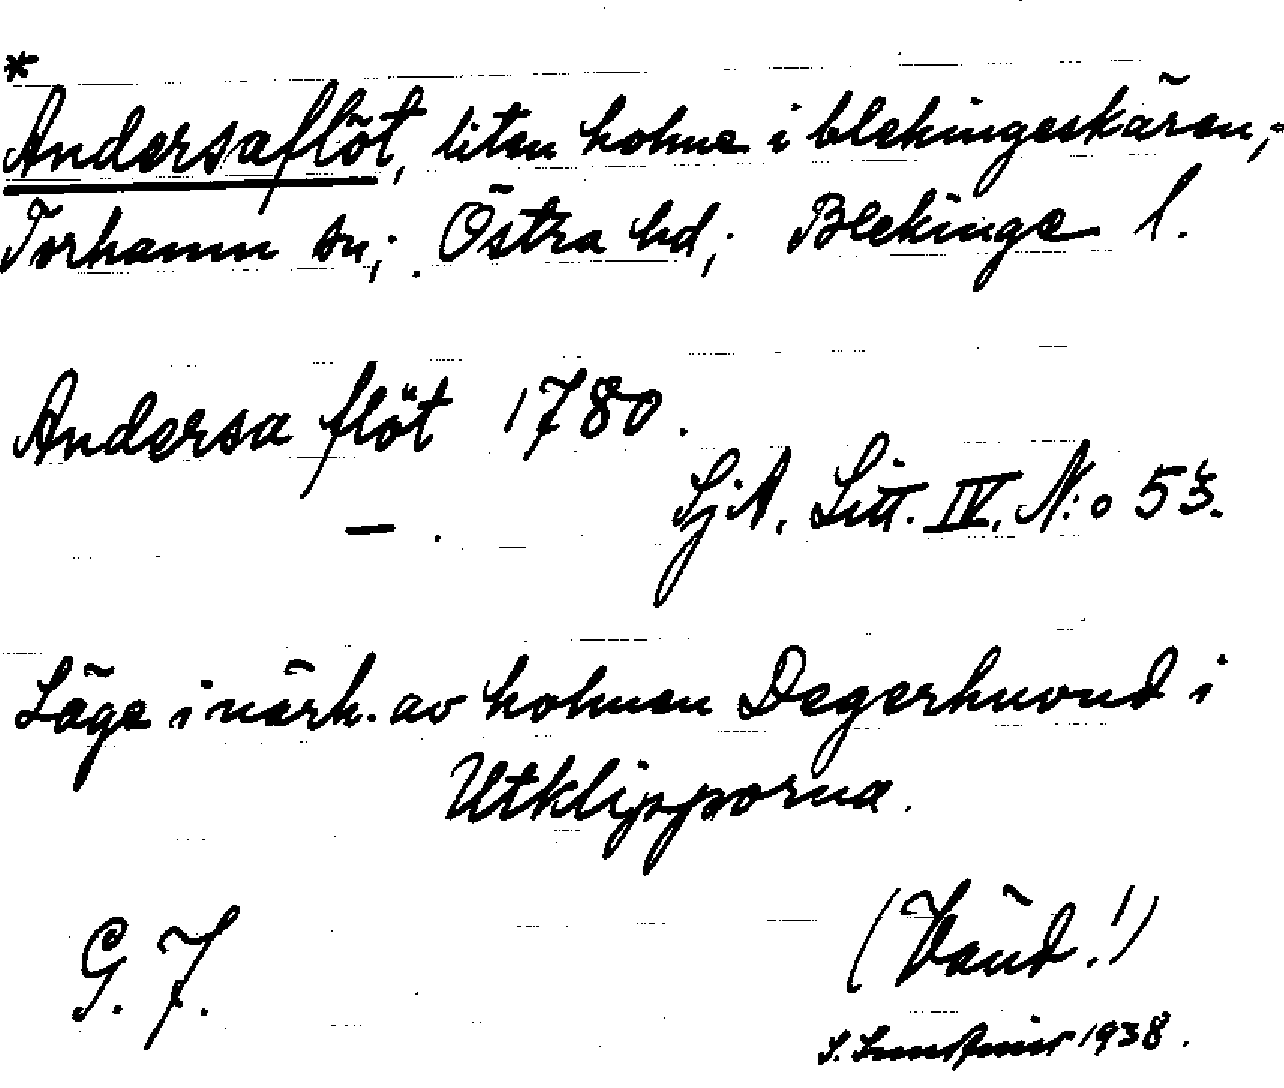 *
Andersaflöt, liten holme i blekingeskären,;
Torhamn sn,; . Östra hd,; Blekinge l.
Andersa flöt 1780.
SjA. Litt. IV. N:o 53.
— .
Läge i närh. av holmen Degerhuvud i
Utklipporna.
G. F. (Vänd!)
S. 1938.